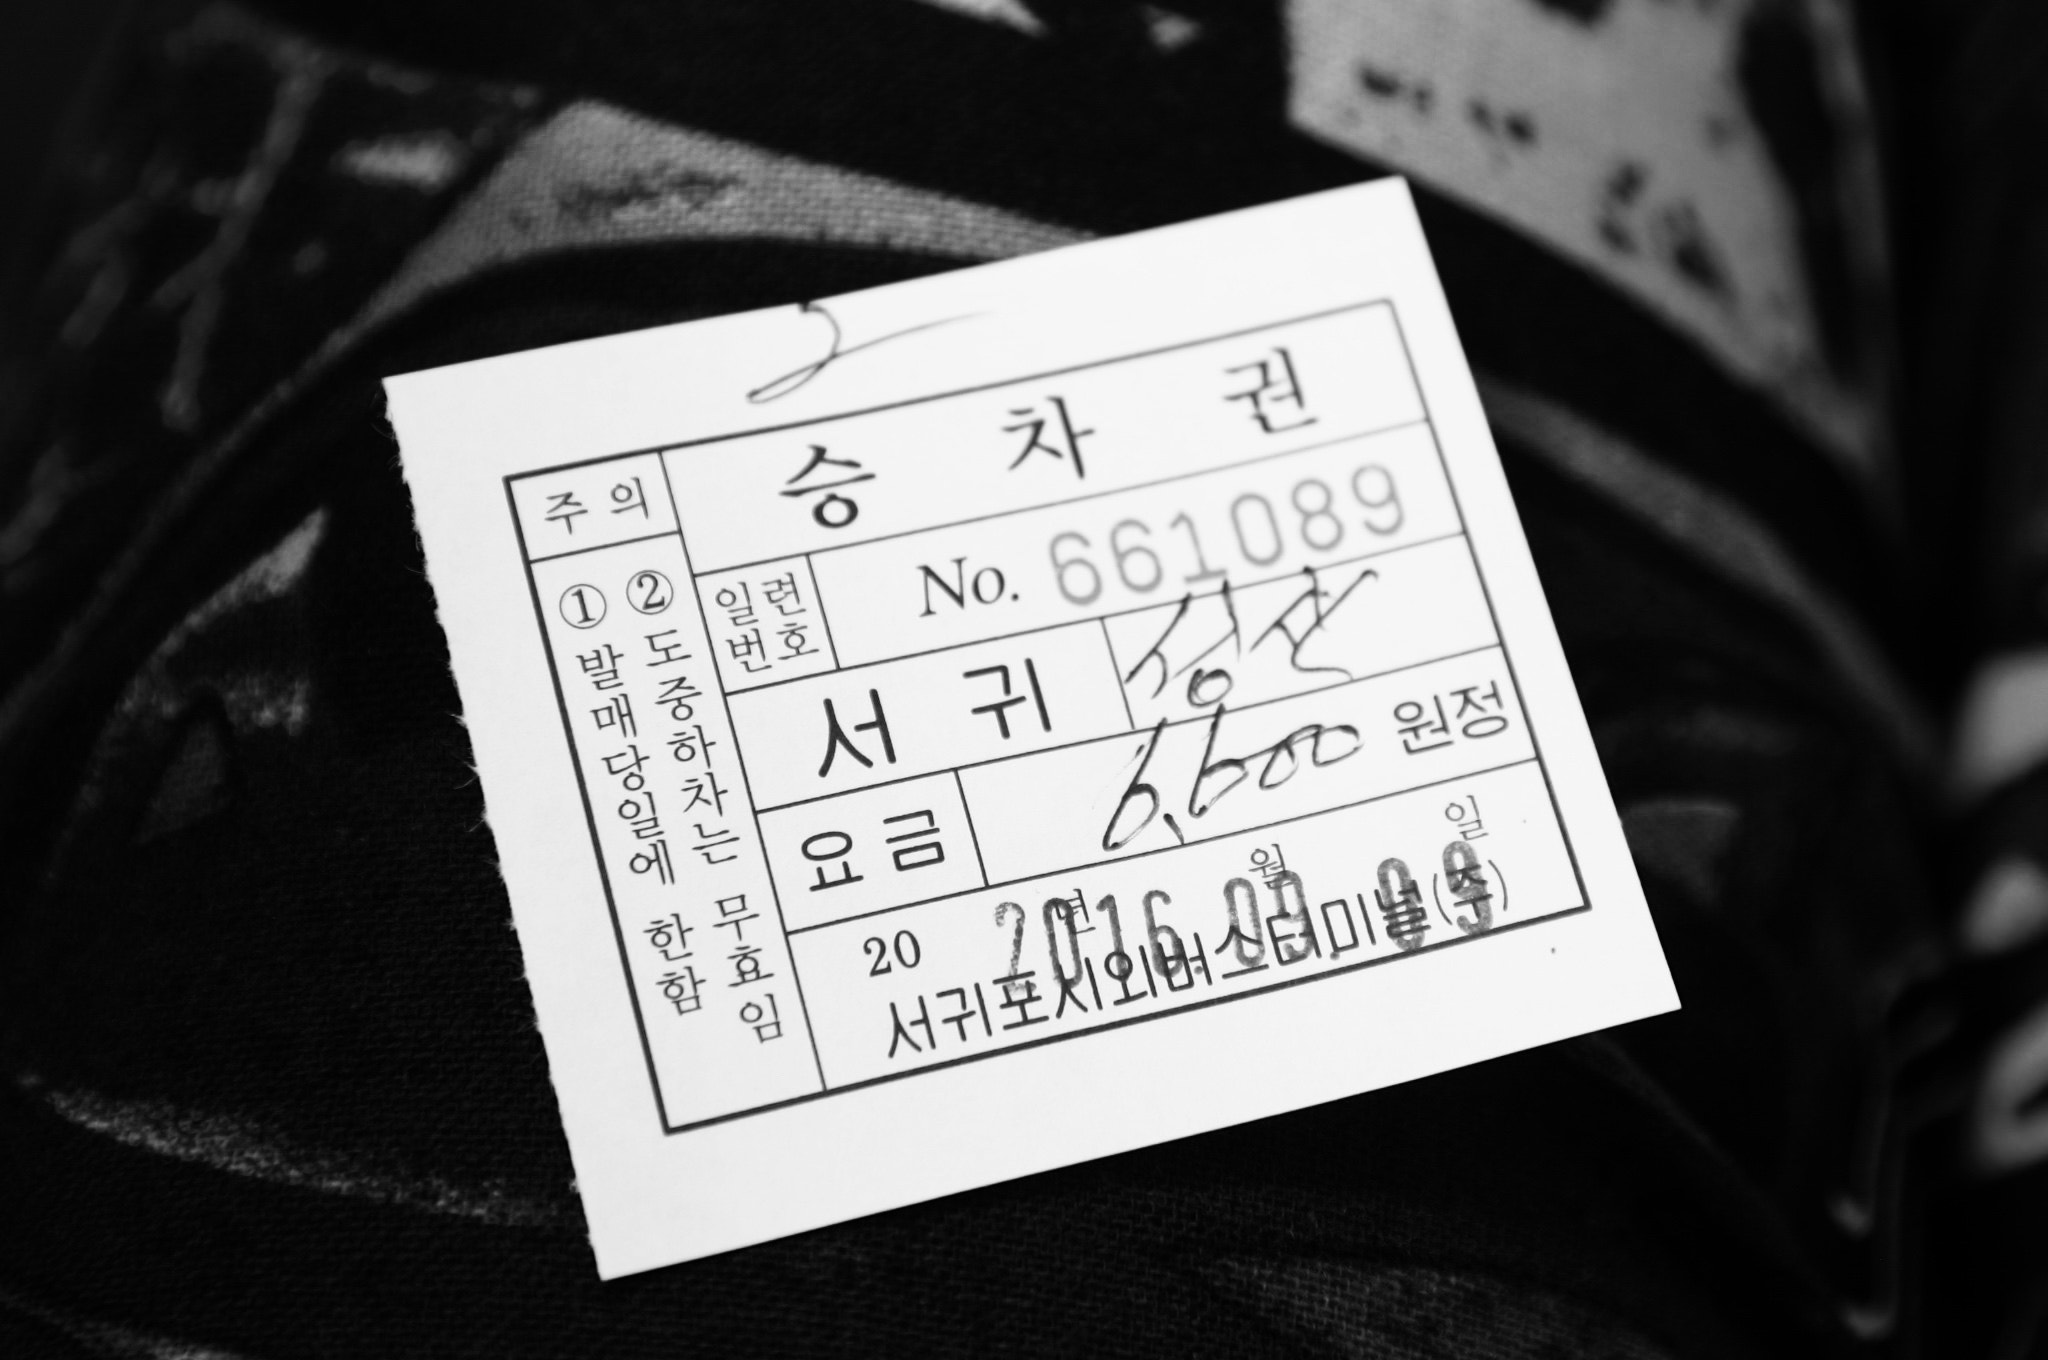 승 차 권
주 의
① 발매당일에 한함
② 도중하차는 무효임
일련번호
No. 661089
서 귀 성산
요금 6,600 원정
20 년 월 일
2016. 09. 09
서귀포시외버스터미널(주)